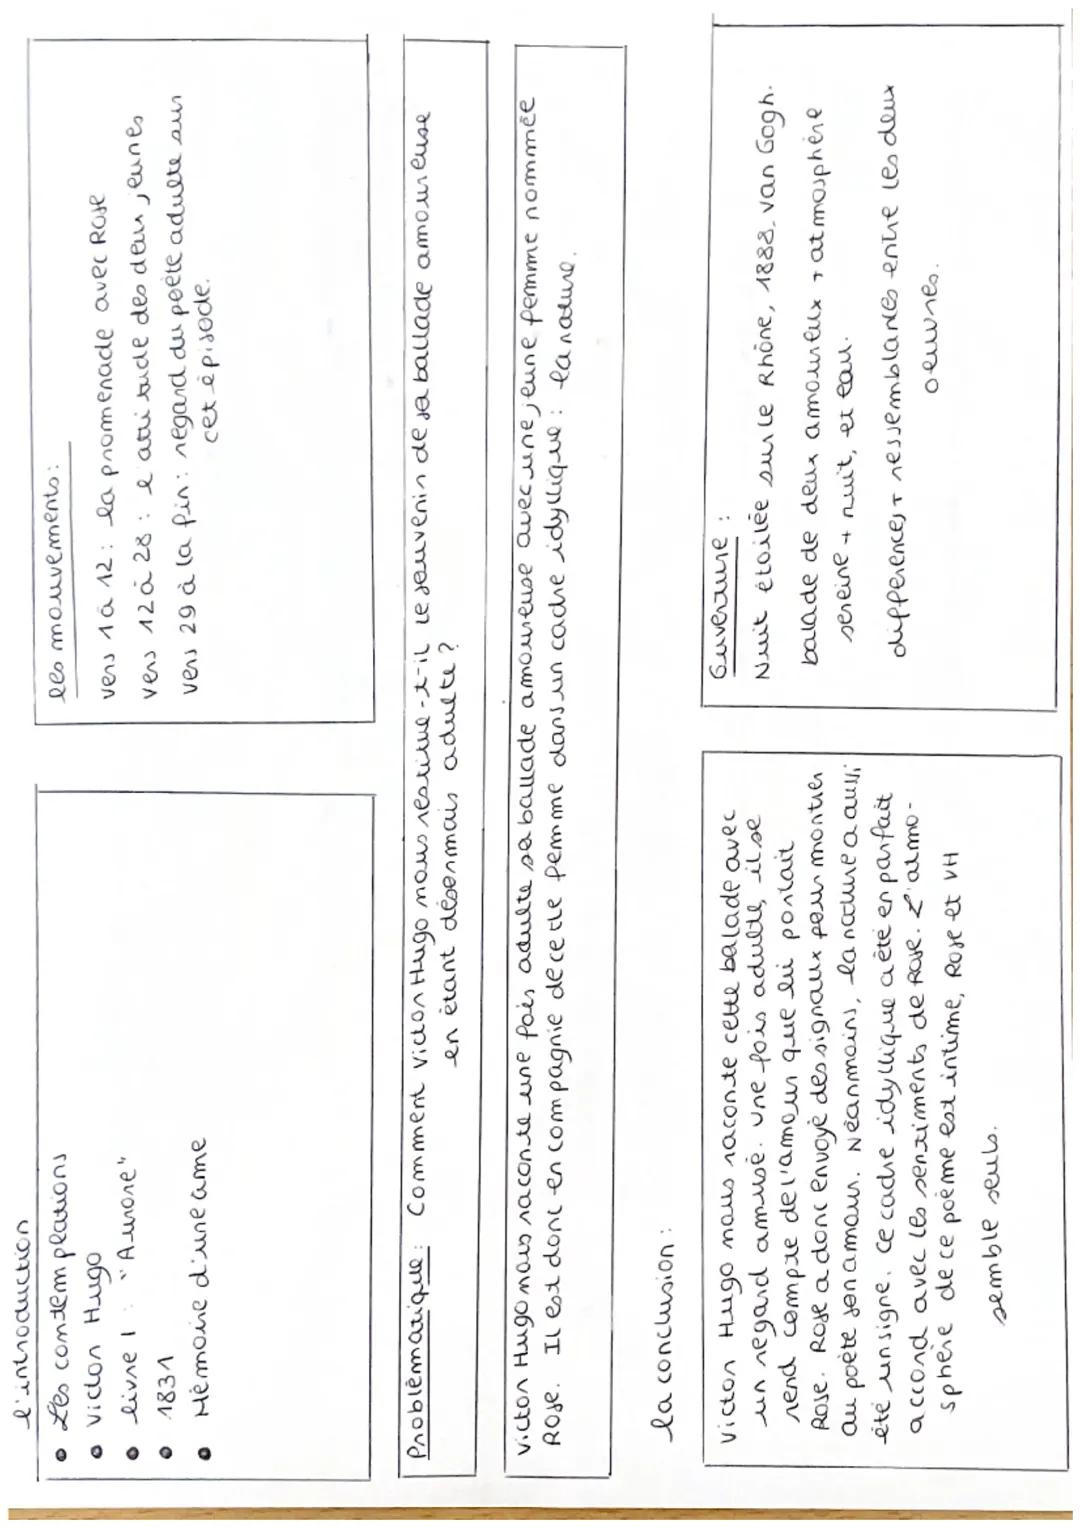 l'introduction
• Les contemplations
• Victor Hugo
• livre I : "Aurore"
• 1831
• Mémoire d'une ame
les mouvements:
vers 1 à 12 : la promenade avec Rose
vers 12 à 28 : l'attitude des deux jeunes
vers 29 à la fin : regard du poète adulte sur
cet épisode.
Problèmmatique: Comment Victor Hugo nous restitue-t-il le souvenir de sa ballade amoureuse
en étant désormais adulte ?
Victor Hugo nous raconte une fois adulte sa ballade amoureuse avec une jeune femme nommée
Rose. Il est donc en compagnie de cette femme dans un cadre idyllique : la nature.
la conclusion :
Victor Hugo nous raconte cette balade avec
un regard amusé. Une fois adulte, il se
rend compte de l'amour que lui portait
Rose. Rose a donc envoyé des signaux pour montrer
au poète son amour. Néanmoins, la nature a aussi
été un signe. Ce cadre idyllique a été en parfait
accord avec les sentiments de Rose. L'atmo-
sphère de ce poème est intime, Rose et VH
semble seuls.
Ouverture :
Nuit étoilée sur le Rhône, 1888, Van Gogh.
balade de deux amoureux + atmosphère
sereine + nuit, et eau.
différences + ressemblances entre les deux
oeuvres.